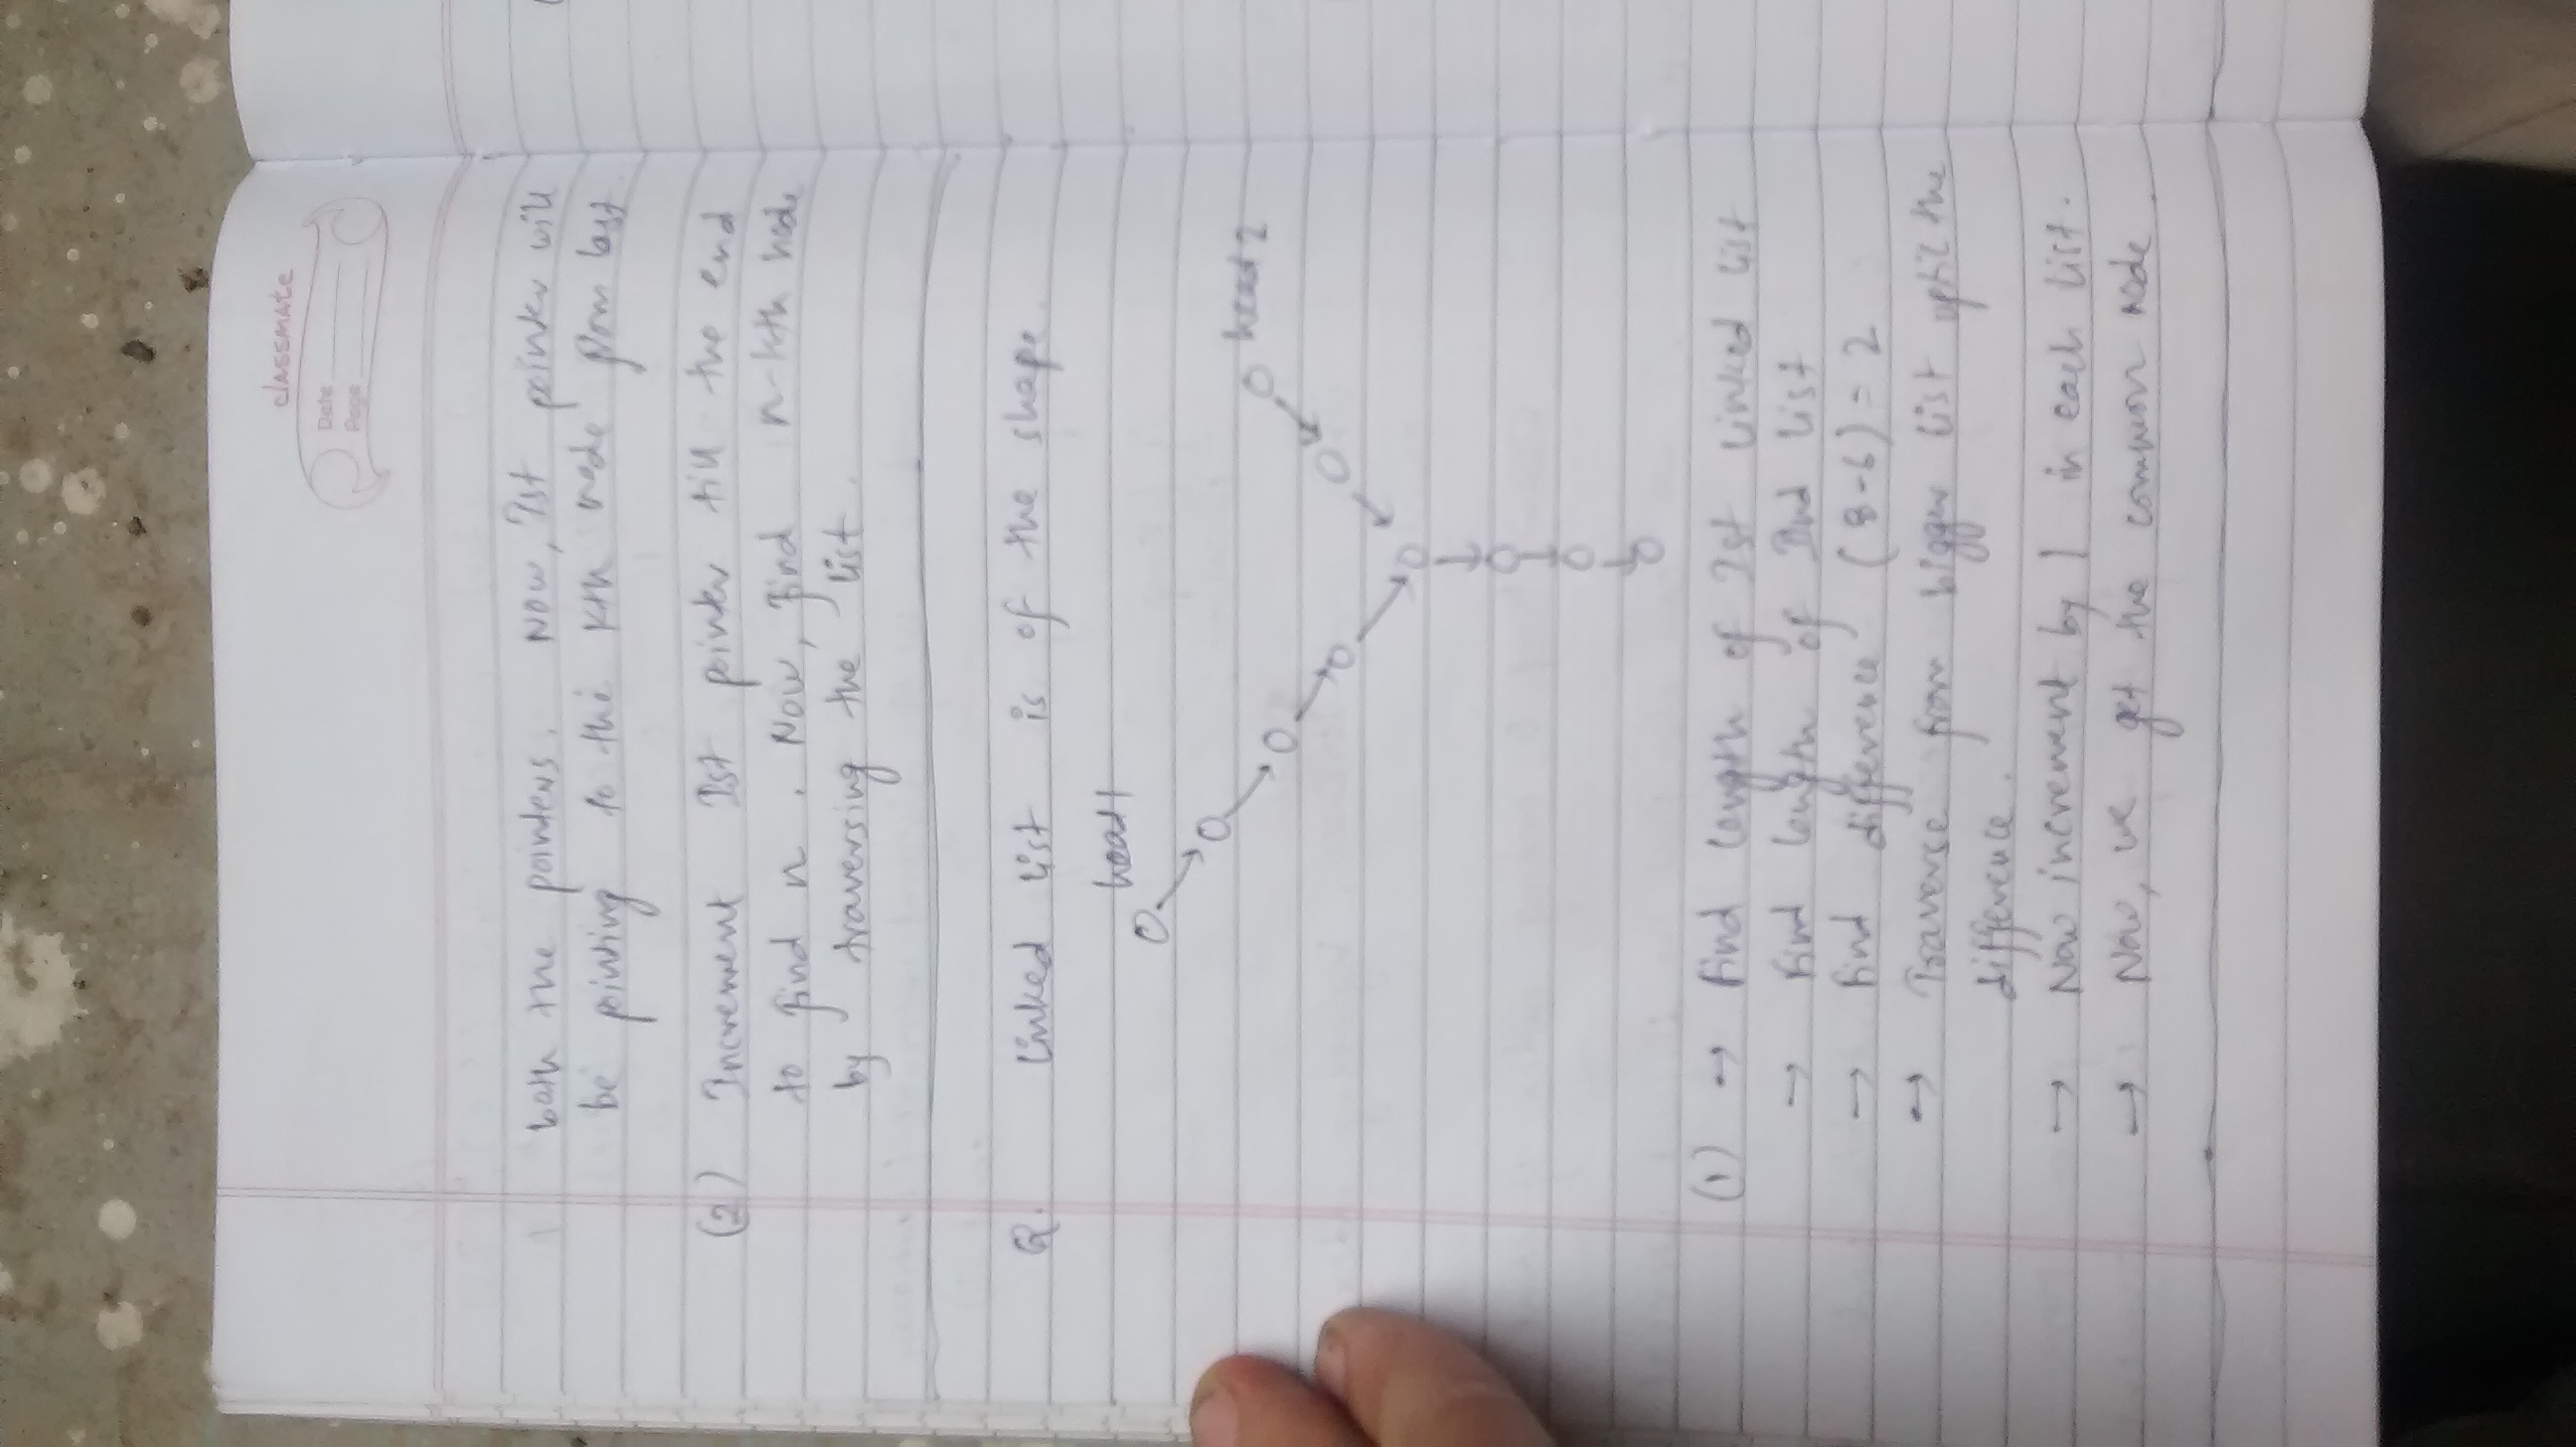 classmate
Date
Page
both the pointers. Now, Ist pointer will
be pointing to the kth node from last.
(2) Increment Ist pointer till the end
to find n. Now, find n-kth node
by traversing the list.
Q. Linked list is of the shape.
head1
head2
(1) → Find length of Ist linked list
→ Find length of IInd list
→ Find difference (8-6) = 2
→ Traverse from bigger list uptil the
difference.
→ Now increment by 1 in each list.
→ Now, we get the common node